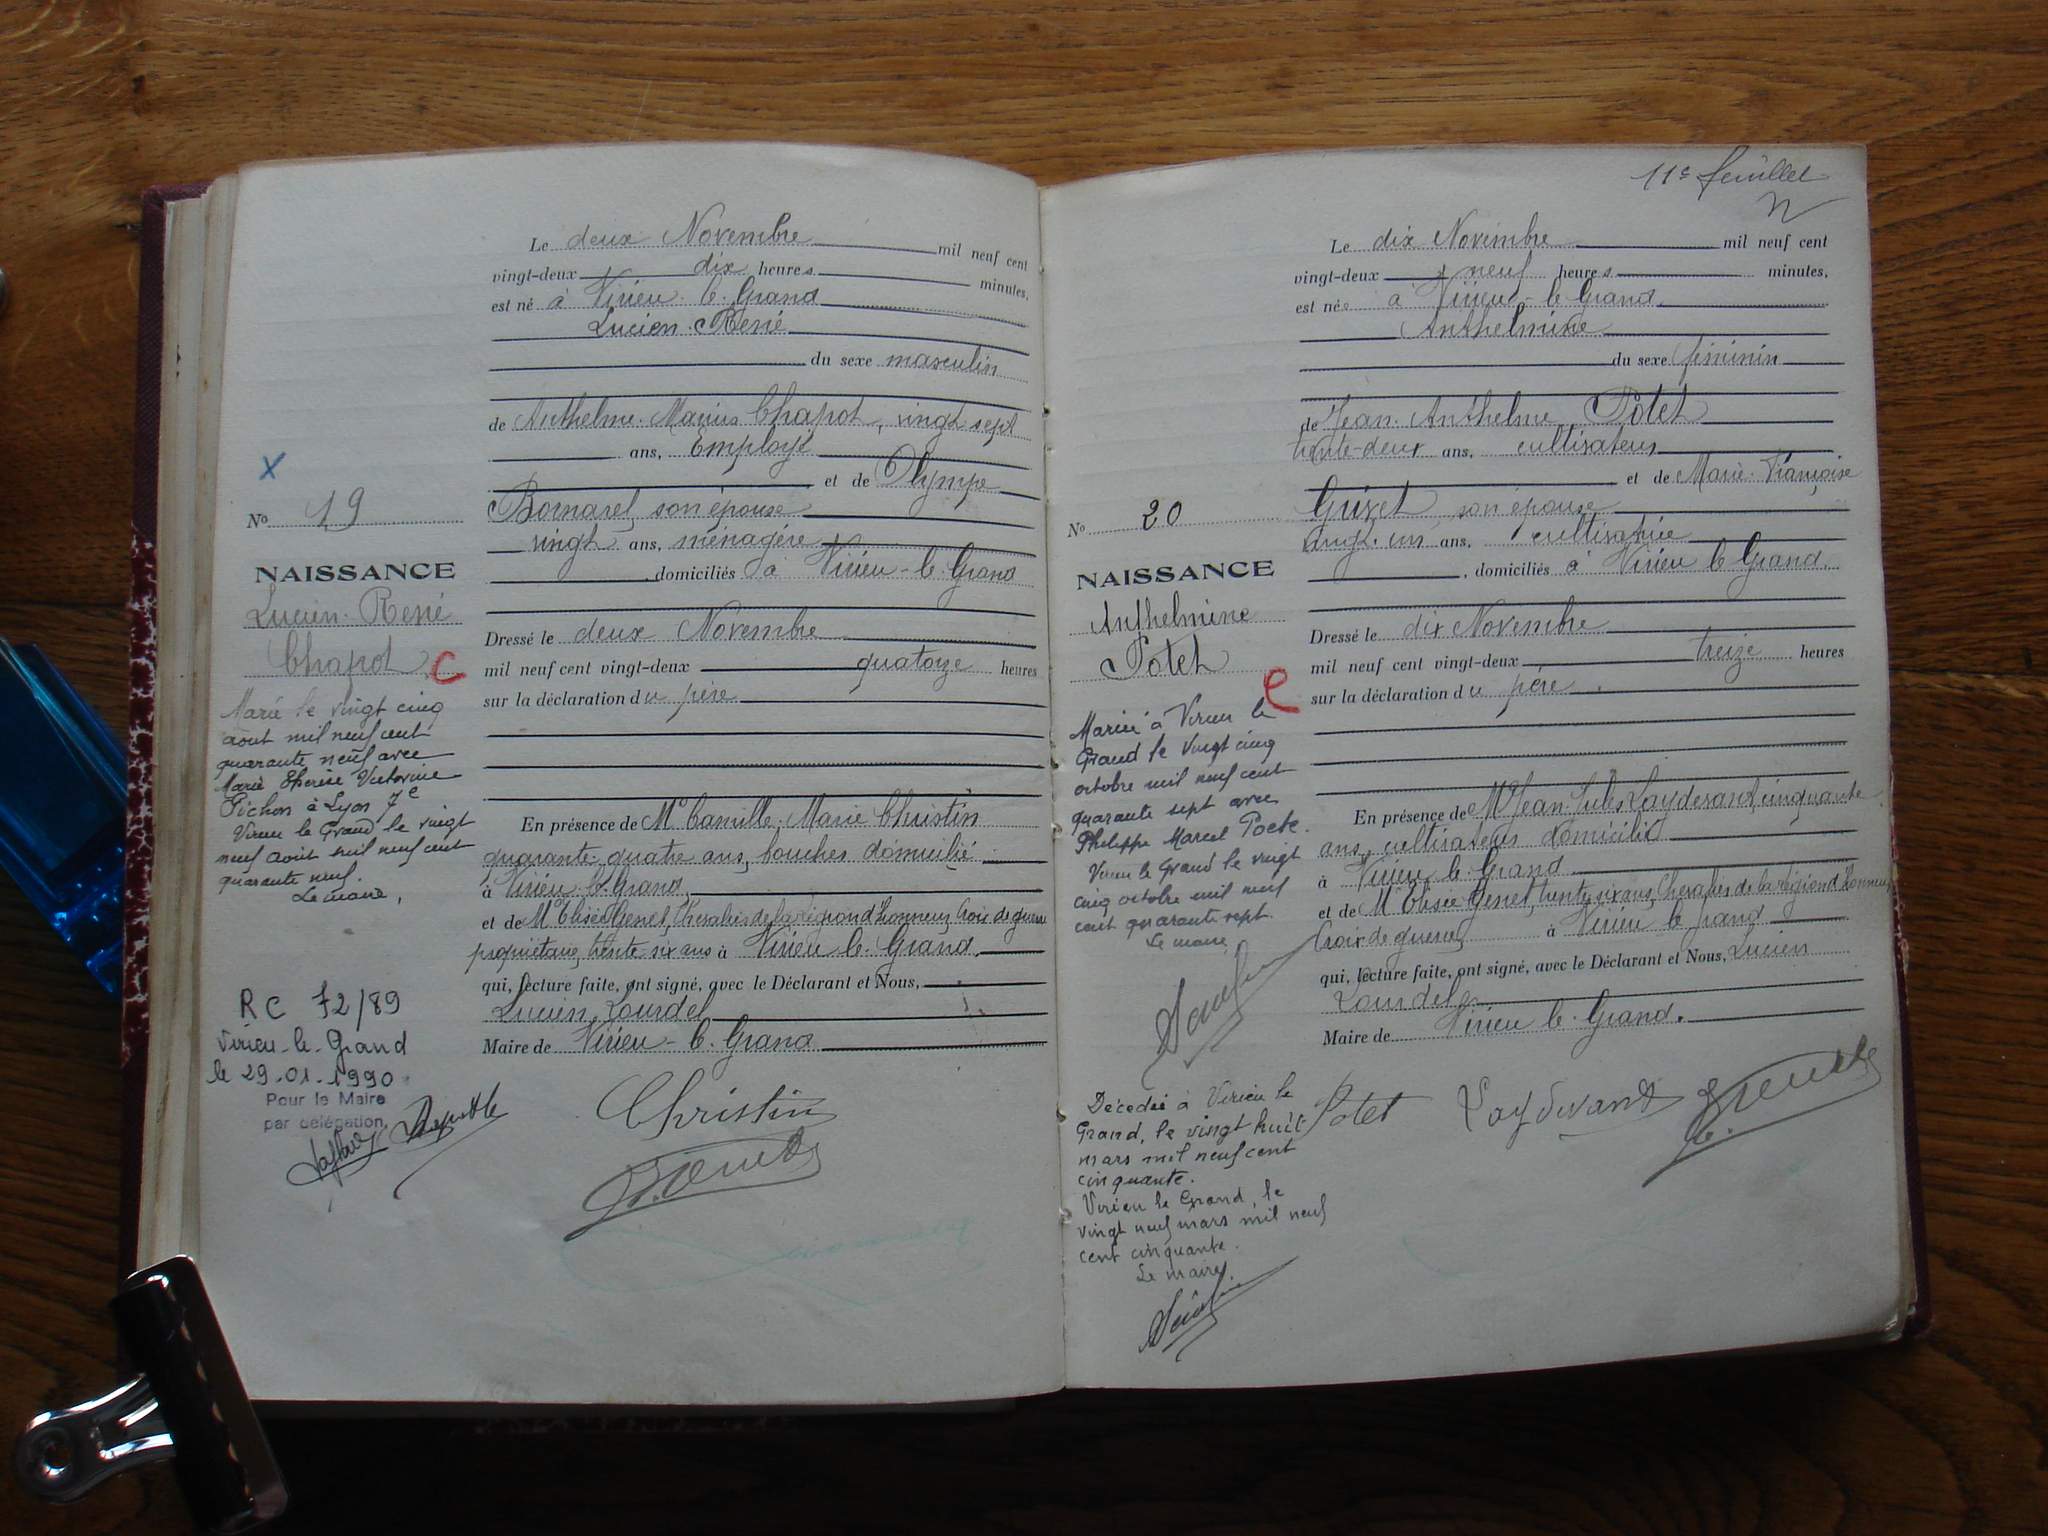 Le deux Novembre mil neuf cent
vingt-deux dix heures minutes,
est né à Virieu-le-Grand
Lucien René
du sexe masculin
de Anthelme Marius Chapot, vingt sept
ans, Employé
et de Olympe
Bornarel, son épouse
vingt ans, ménagère
, domiciliés à Virieu-le-Grand
Dressé le deux Novembre
mil neuf cent vingt-deux quatorze heures
sur la déclaration du père
En présence de Mr Camille Marie Christin
quarante-quatre ans, boucher domicilié
à Virieu-le-Grand
et de Mr Elisée Genet, Chevalier de la Légion d'honneur, Croix de guerre
propriétaire, trente six ans à Virieu-le-Grand
qui, lecture faite, ont signé, avec le Déclarant et Nous,
Lucien Lourdel
Maire de Virieu-le-Grand
Christin
X
No 19
NAISSANCE
Lucien-René
Chapot
C
Marié le vingt cinq
août mil neuf cent
quarante neuf avec
Marie Thérèse Victorine
Pichon à Lyon 7e
Virieu le Grand le vingt
neuf août mil neuf cent
quarante neuf.
Le maire,
RC 72/89
Virieu-le-Grand
le 29-01-1990
Pour le Maire
par délégation,
11e feuillet
Le dix Novembre mil neuf cent
vingt-deux neuf heures minutes,
est née à Virieu-le-Grand
Anthelmine
du sexe féminin
de Jean Anthelme Potet
trente-deux ans, cultivateur
et de Marie-Françoise
Guivet, son épouse
vingt-un ans, cultivatrice
, domiciliés à Virieu le Grand
Dressé le dix Novembre
mil neuf cent vingt-deux treize heures
sur la déclaration du père
En présence de Mr Jean-Jules Laydevant, cinquante
ans, cultivateur domicilié
à Virieu-le-Grand
et de Mr Elisée Genet, trente six ans, Chevalier de la Légion d'honneur
Croix de guerre, à Virieu le Grand
qui, lecture faite, ont signé, avec le Déclarant et Nous, Lucien
Lourdel
Maire de Virieu-le-Grand.
Potet Laydevant
No 20
NAISSANCE
Anthelmine
Potet
C
Mariée à Virieu le
Grand le vingt cinq
octobre mil neuf cent
quarante sept avec
Philippe Marcel Poete.
Virieu le Grand le vingt
cinq octobre mil neuf
cent quarante sept.
Le maire
Décédée à Virieu le
Grand, le vingt huit
mars mil neuf cent
cinquante.
Virieu le Grand, le
vingt neuf mars mil neuf
cent cinquante.
Le maire,